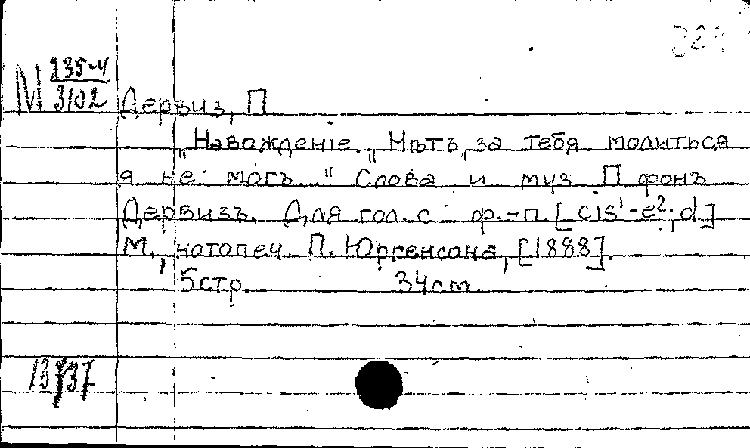 М 235-4
3102
Дервиз, П
"Навожденіе. "Нѣтъ, за тебя молиться
я не могъ." Слова и муз П фонъ
Дервизъ. Для гол. с ф.-п. [cis¹-e²; d]
М., нотопеч. П. Юргенсона, [1888].
5стр. 34см